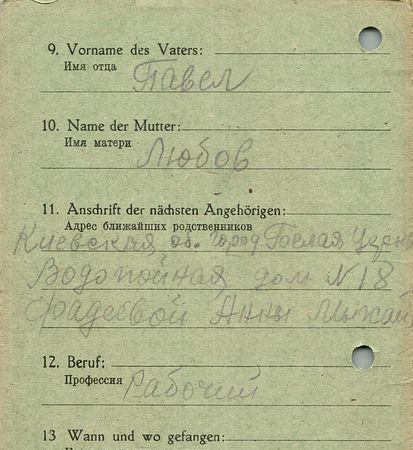 9. Vorname des Vaters:
Имя отца
Павел
10. Name der Mutter:
Имя матери
Любов
11. Anschrift der nächsten Angehörigen:
Адрес ближайших родственников
Киевская об. город Белая Церк
Водопойная дом N 18
Фадеевой Анны
12. Beruf:
Профессия Рабочий
13 Wann und wo gefangen: